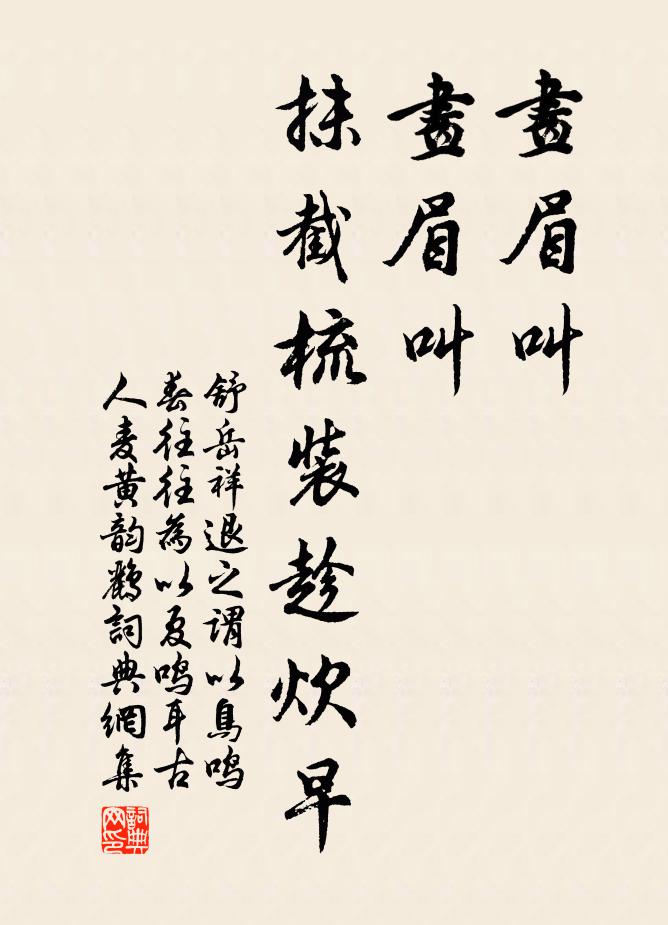 畫眉叫
畫眉叫
抹截梳裝趁炊早
舒岳祥退之謂以鳥鳴
春往往為以夏鳴耳古
人麦黄韵鸝詞典網集
詞典
网印